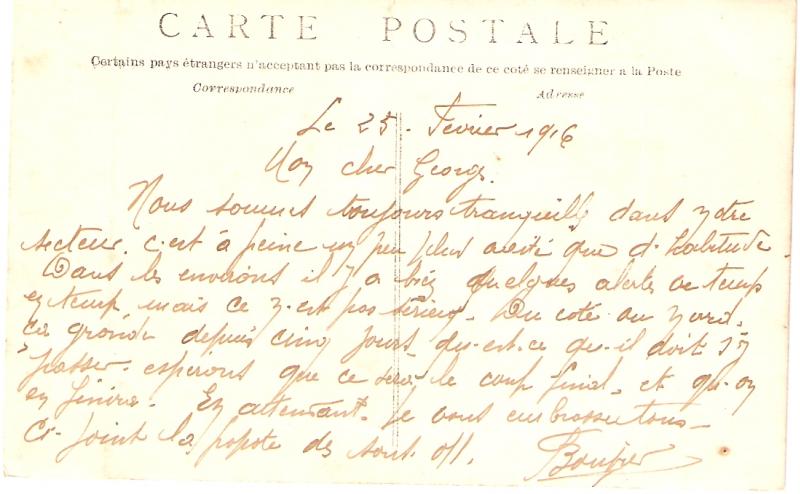 CARTE POSTALE
Certains pays étrangers n'acceptant pas la correspondance de ce coté se renseigner a la Poste
Correspondance Adresse
Le 25. Fevrier 1916
Mon cher George.
Nous sommes toujours tranquille dans notre
secteur. c'est à peine un peu plus agité que d'habitude.
Dans les environs il y a bien quelques alertes de temps
en temps mais ce n'est pas sérieux. Du coté du nord.
ca gronde depuis cinq jours. qu'est-ce qu'il doit s'y
passer. espérons que ce sera le coup final. et qu'on
en finira. En attendant je vous embrasse tous.
Ci-joint la popote des sous. off.